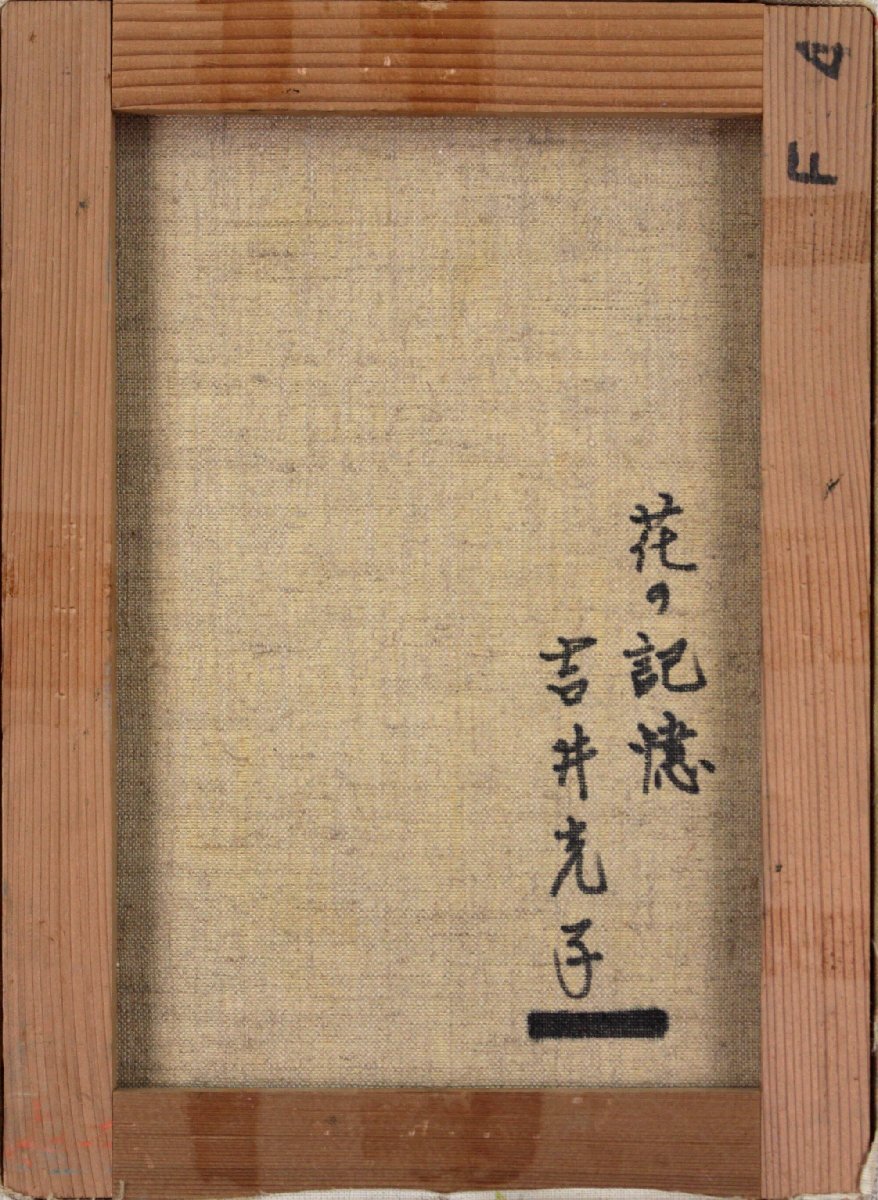 F4
花の記憶
吉井光子